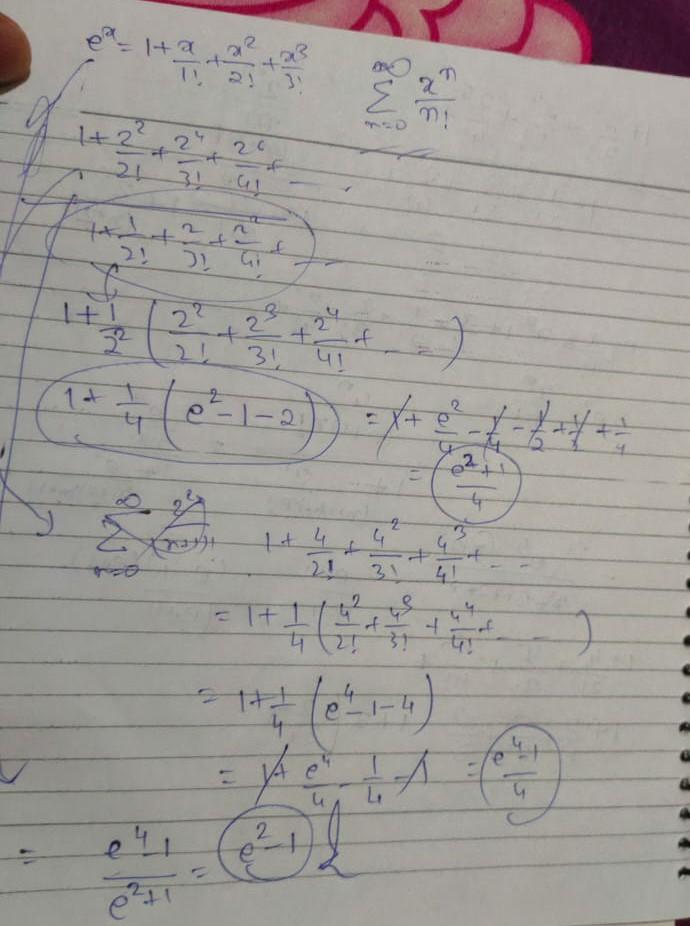 e^x = 1 + x/1! + x²/2! + x³/3!    ∞Σn=0 xⁿ/n!
1 + 2²/2! + 2⁴/3! + 2⁶/4! + ....
1 + 1/2! + 2/3! + 2²/4! + ...
1 + 1/2² ( 2²/2! + 2³/3! + 2⁴/4! + ... )
1 + 1/4 ( e² - 1 - 2 ) = 1 + e²/4 - 1/4 - 1/2 + 1/4
= e²+1/4
∞Σn=0    1 + 4/2! + 4²/3! + 4³/4! + ...
= 1 + 1/4 ( 4²/2! + 4³/3! + 4⁴/4! + ... )
= 1 + 1/4 ( e⁴ - 1 - 4 )
= 1 + e⁴/4 - 1/4 - 1 = e⁴-1/4
= e⁴-1/e²+1 = e²-1